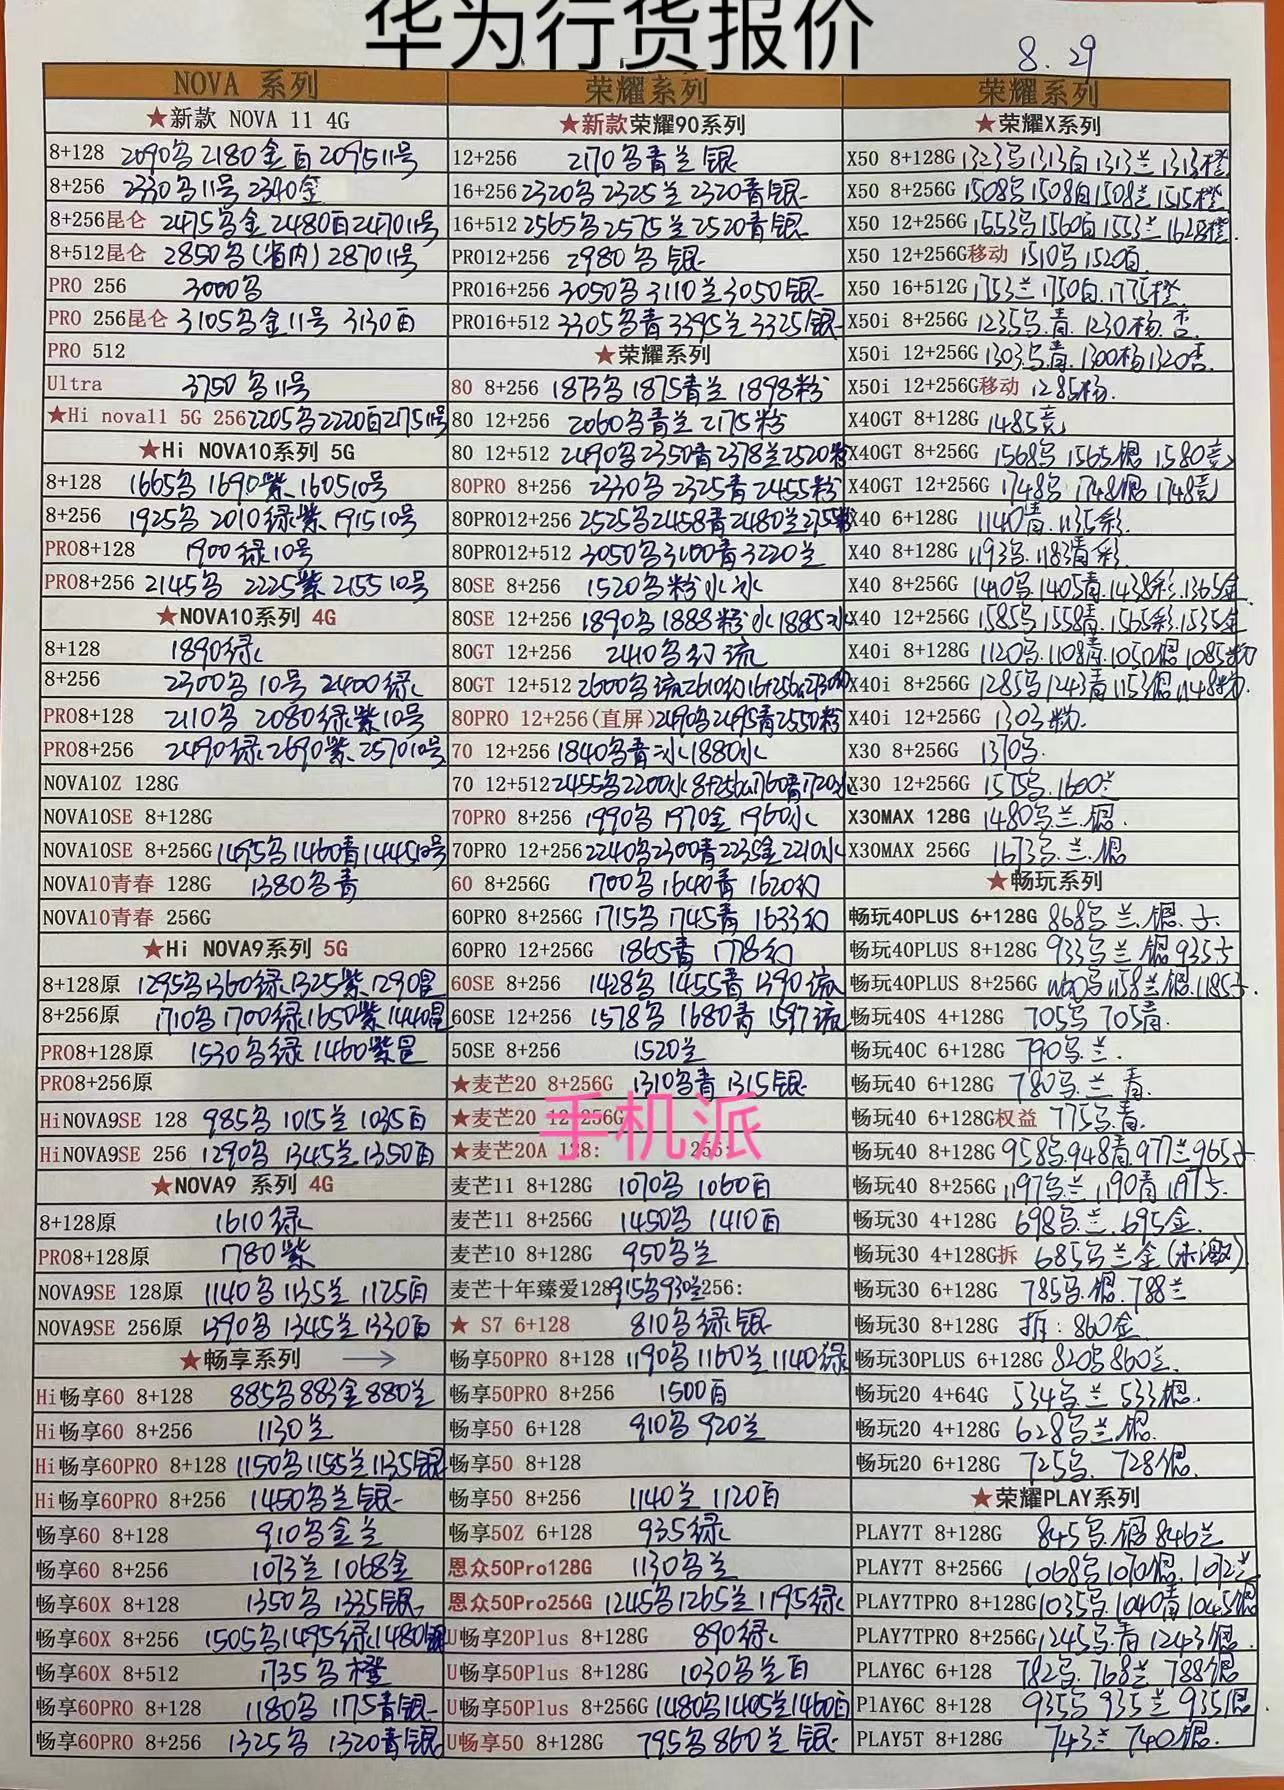 华为行货报价
8.29
NOVA 系列
★新款 NOVA 11 4G
8+128 2090乌 2180金白 2095 11号
8+256 2330乌 11号 2340金
8+256昆仑 2475乌金 2480白 2470 11号
8+512昆仑 2850乌(省内) 2870 11号
PRO 256 3000乌
PRO 256昆仑 3105乌金 11号 3130白
PRO 512
Ultra 3750乌 11号
★Hi nova11 5G 256 2205乌 2220白 2175 11号
★Hi NOVA10系列 5G
8+128 1665乌 1690紫 1605 10号
8+256 1925乌 2010绿紫 1915 10号
PRO8+128 1900绿 10号
PRO8+256 2145乌 2225紫 2155 10号
★NOVA10系列 4G
8+128 1890绿
8+256 2300乌 10号 2400绿
PRO8+128 2110乌 2080绿紫 10号
PRO8+256 2490绿 2690紫 2570 10号
NOVA10Z 128G
NOVA10SE 8+128G
NOVA10SE 8+256G 1495乌 1460青 1445 10号
NOVA10青春 128G 1380乌青
NOVA10青春 256G
★Hi NOVA9系列 5G
8+128原 1295乌 1360绿 1325紫 1290星
8+256原 1710乌 1700绿 1650紫 1440星
PRO8+128原 1530乌绿 1460紫星
PRO8+256原
HiNOVA9SE 128 985乌 1015兰 1035白
HiNOVA9SE 256 1290乌 1345兰 1350白
★NOVA9 系列 4G
8+128原 1610绿
PRO8+128原 1780紫
NOVA9SE 128原 1140乌 1135兰 1125白
NOVA9SE 256原 1390乌 1345兰 1330白
★畅享系列 →
Hi畅享60 8+128 885乌 883金 880兰
Hi畅享60 8+256 1130兰
Hi畅享60PRO 8+128 1150乌 1155兰 1135银
Hi畅享60PRO 8+256 1450乌兰银
畅享60 8+128 910乌金兰
畅享60 8+256 1073兰 1068金
畅享60X 8+128 1350乌 1335银
畅享60X 8+256 1505乌 1495绿 1480银
畅享60X 8+512 1735乌橙
畅享60PRO 8+128 1180乌 1175青银
畅享60PRO 8+256 1325乌 1320青银
荣耀系列
★新款荣耀90系列
12+256 2170乌青兰银
16+256 2320乌 2325兰 2320青银
16+512 2565乌 2575兰 2520青银
PRO12+256 2980乌银
PRO16+256 3050乌 3110兰 3050银
PRO16+512 3305乌青 3395兰 3325银
★荣耀系列
80 8+256 1873乌 1875青兰 1898粉
80 12+256 2060乌青兰 2175粉
80 12+512 2490乌 2350青 2378兰 2520粉
80PRO 8+256 2330乌 2325青 2455粉
80PRO12+256 2525乌 2458青 2480兰 2755粉
80PRO12+512 3050乌 3100青 3220兰
80SE 8+256 1520乌粉水冰
80SE 12+256 1890乌 1888粉水 1885冰
80GT 12+256 2410乌幻流
80GT 12+512 2600乌流 2610幻 16+256G
80PRO 12+256(直屏) 2490乌 2495青 2550粉
70 12+256 1840乌青冰 1880水
70 12+512 2455乌 2200水 8+256G 1760青 1720水
70PRO 8+256 1990乌 1970金 1960水
70PRO 12+256 2240乌 2300青 2235金 2210水
60 8+256G 1700乌 1640青 1620幻
60PRO 8+256G 1715乌 1745青 1633幻
60PRO 12+256G 1865青 1778幻
60SE 8+256 1428乌 1455青 1390流
60SE 12+256 1578乌 1680青 1597流
50SE 8+256 1520兰
★麦芒20 8+256G 1310乌青 1315银
★麦芒20 12+256G
★麦芒20A 128: 256:
手机派
麦芒11 8+128G 1070乌 1060白
麦芒11 8+256G 1450乌 1410白
麦芒10 8+128G 950乌兰
麦芒十年臻爱128 915乌 930兰 256:
★ S7 6+128 810乌绿银
畅享50PRO 8+128 1190乌 1160兰 1140绿
畅享50PRO 8+256 1500白
畅享50 6+128 910乌 920兰
畅享50 8+128
畅享50 8+256 1140兰 1120白
畅享50Z 6+128 935绿
恩众50Pro128G 1130乌兰
恩众50Pro256G 1245乌 1265兰 1195绿
U畅享20Plus 8+128G 890绿
U畅享50Plus 8+128G 1030乌兰白
U畅享50Plus 8+256G 1480乌 1405兰 1460白
U畅享50 8+128G 795乌 860兰银
荣耀系列
★荣耀X系列
X50 8+128G 1323乌 1313白 1313兰 1313橙
X50 8+256G 1508乌 1508白 1508兰 1515橙
X50 12+256G 1553乌 1560白 1553兰 1628橙
X50 12+256G移动 1510乌 1520白
X50 16+512G 1753兰 1750白 1775橙
X50i 8+256G 1235乌.青. 1230杨.杏
X50i 12+256G 1303乌.青. 1300杨 1320杏
X50i 12+256G移动 1285杨.
X40GT 8+128G 1485竞
X40GT 8+256G 1568乌 1565银 1580竞
X40GT 12+256G 1748乌 1748银 1748竞
X40 6+128G 1140青. 1135彩.
X40 8+128G 1193乌. 1183青彩
X40 8+256G 1410乌 1405青. 1438彩. 1365金
X40 12+256G 1585乌 1558青. 1565彩. 1535金
X40i 8+128G 1120乌. 1108青. 1050银 1085粉
X40i 8+256G 1285乌 1243青 1153银 1148粉
X40i 12+256G 1303粉.
X30 8+256G 1370乌.
X30 12+256G 1575乌. 1600兰
X30MAX 128G 1480乌兰.银.
X30MAX 256G 1673乌.兰.银
★畅玩系列
畅玩40PLUS 6+128G 868乌兰.银.子.
畅玩40PLUS 8+128G 933乌兰银 935子
畅玩40PLUS 8+256G 1160乌 1158兰银. 1185子.
畅玩40S 4+128G 705乌 705青.
畅玩40C 6+128G 790乌.兰.
畅玩40 6+128G 780乌.兰青.
畅玩40 6+128G权益 775乌.青.
畅玩40 8+128G 958乌 948青. 977兰 965子.
畅玩40 8+256G 1197乌兰 1190青 1197子.
畅玩30 4+128G 698乌.兰. 695金.
畅玩30 4+128G拆 685乌兰金(未激)
畅玩30 6+128G 785乌.银. 788兰
畅玩30 8+128G 拆: 860金.
畅玩30PLUS 6+128G 820乌 860兰.
畅玩20 4+64G 534乌兰 533银.
畅玩20 4+128G 628乌兰.银.
畅玩20 6+128G 725乌. 728银.
★荣耀PLAY系列
PLAY7T 8+128G 845乌.银 846兰
PLAY7T 8+256G 1068乌 1070银. 1072兰
PLAY7TPRO 8+128G 1035乌. 1040青 1045银
PLAY7TPRO 8+256G 1245乌.青 1243银.
PLAY6C 6+128 782乌. 768兰 788银
PlAY6C 8+128 935乌 935兰 935银.
PLAY5T 8+128G 743兰 740银.